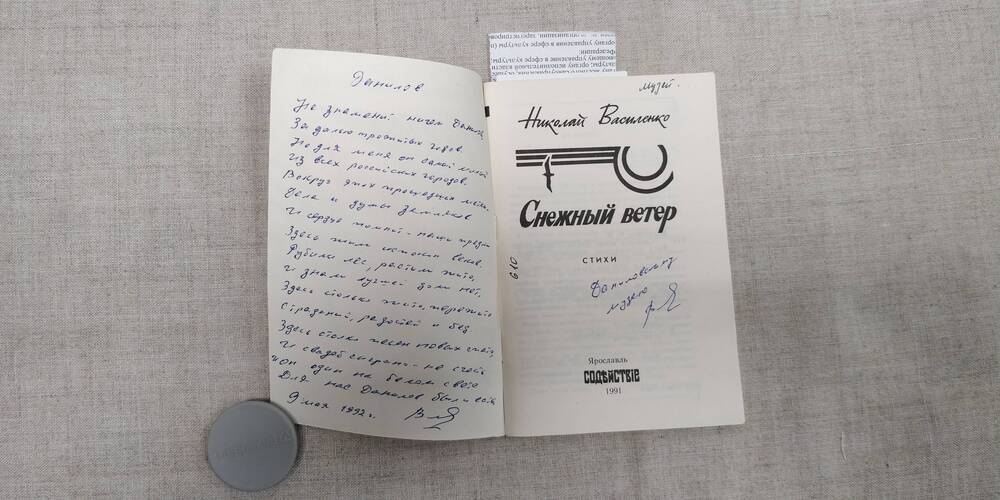 Данилов
Не знаменит ничем Данилов
За далью прожитых годов.
Но для меня он самый милый
Из всех российских городов.
Вокруг этих
Дела и думы земляков
И сердце помнит - наши предки
Здесь жили испокон веков.
Рубили лес, растили жито,
И знали лучшей доли нет.
Здесь столько жито, пережито
Страданий, радостей и бед
Здесь столько песен новых
И свадеб сыграно - не счесть
Он один на белом свете
Для нас Данилов был и есть
9 мая 1992 г.
Музей.
Николай Василенко
Снежный ветер
СТИХИ
610
Даниловскому
музею
Ярославль
СОДѢЙСТВIЕ
1991
органу управления в сфере культуры (п
Федерации